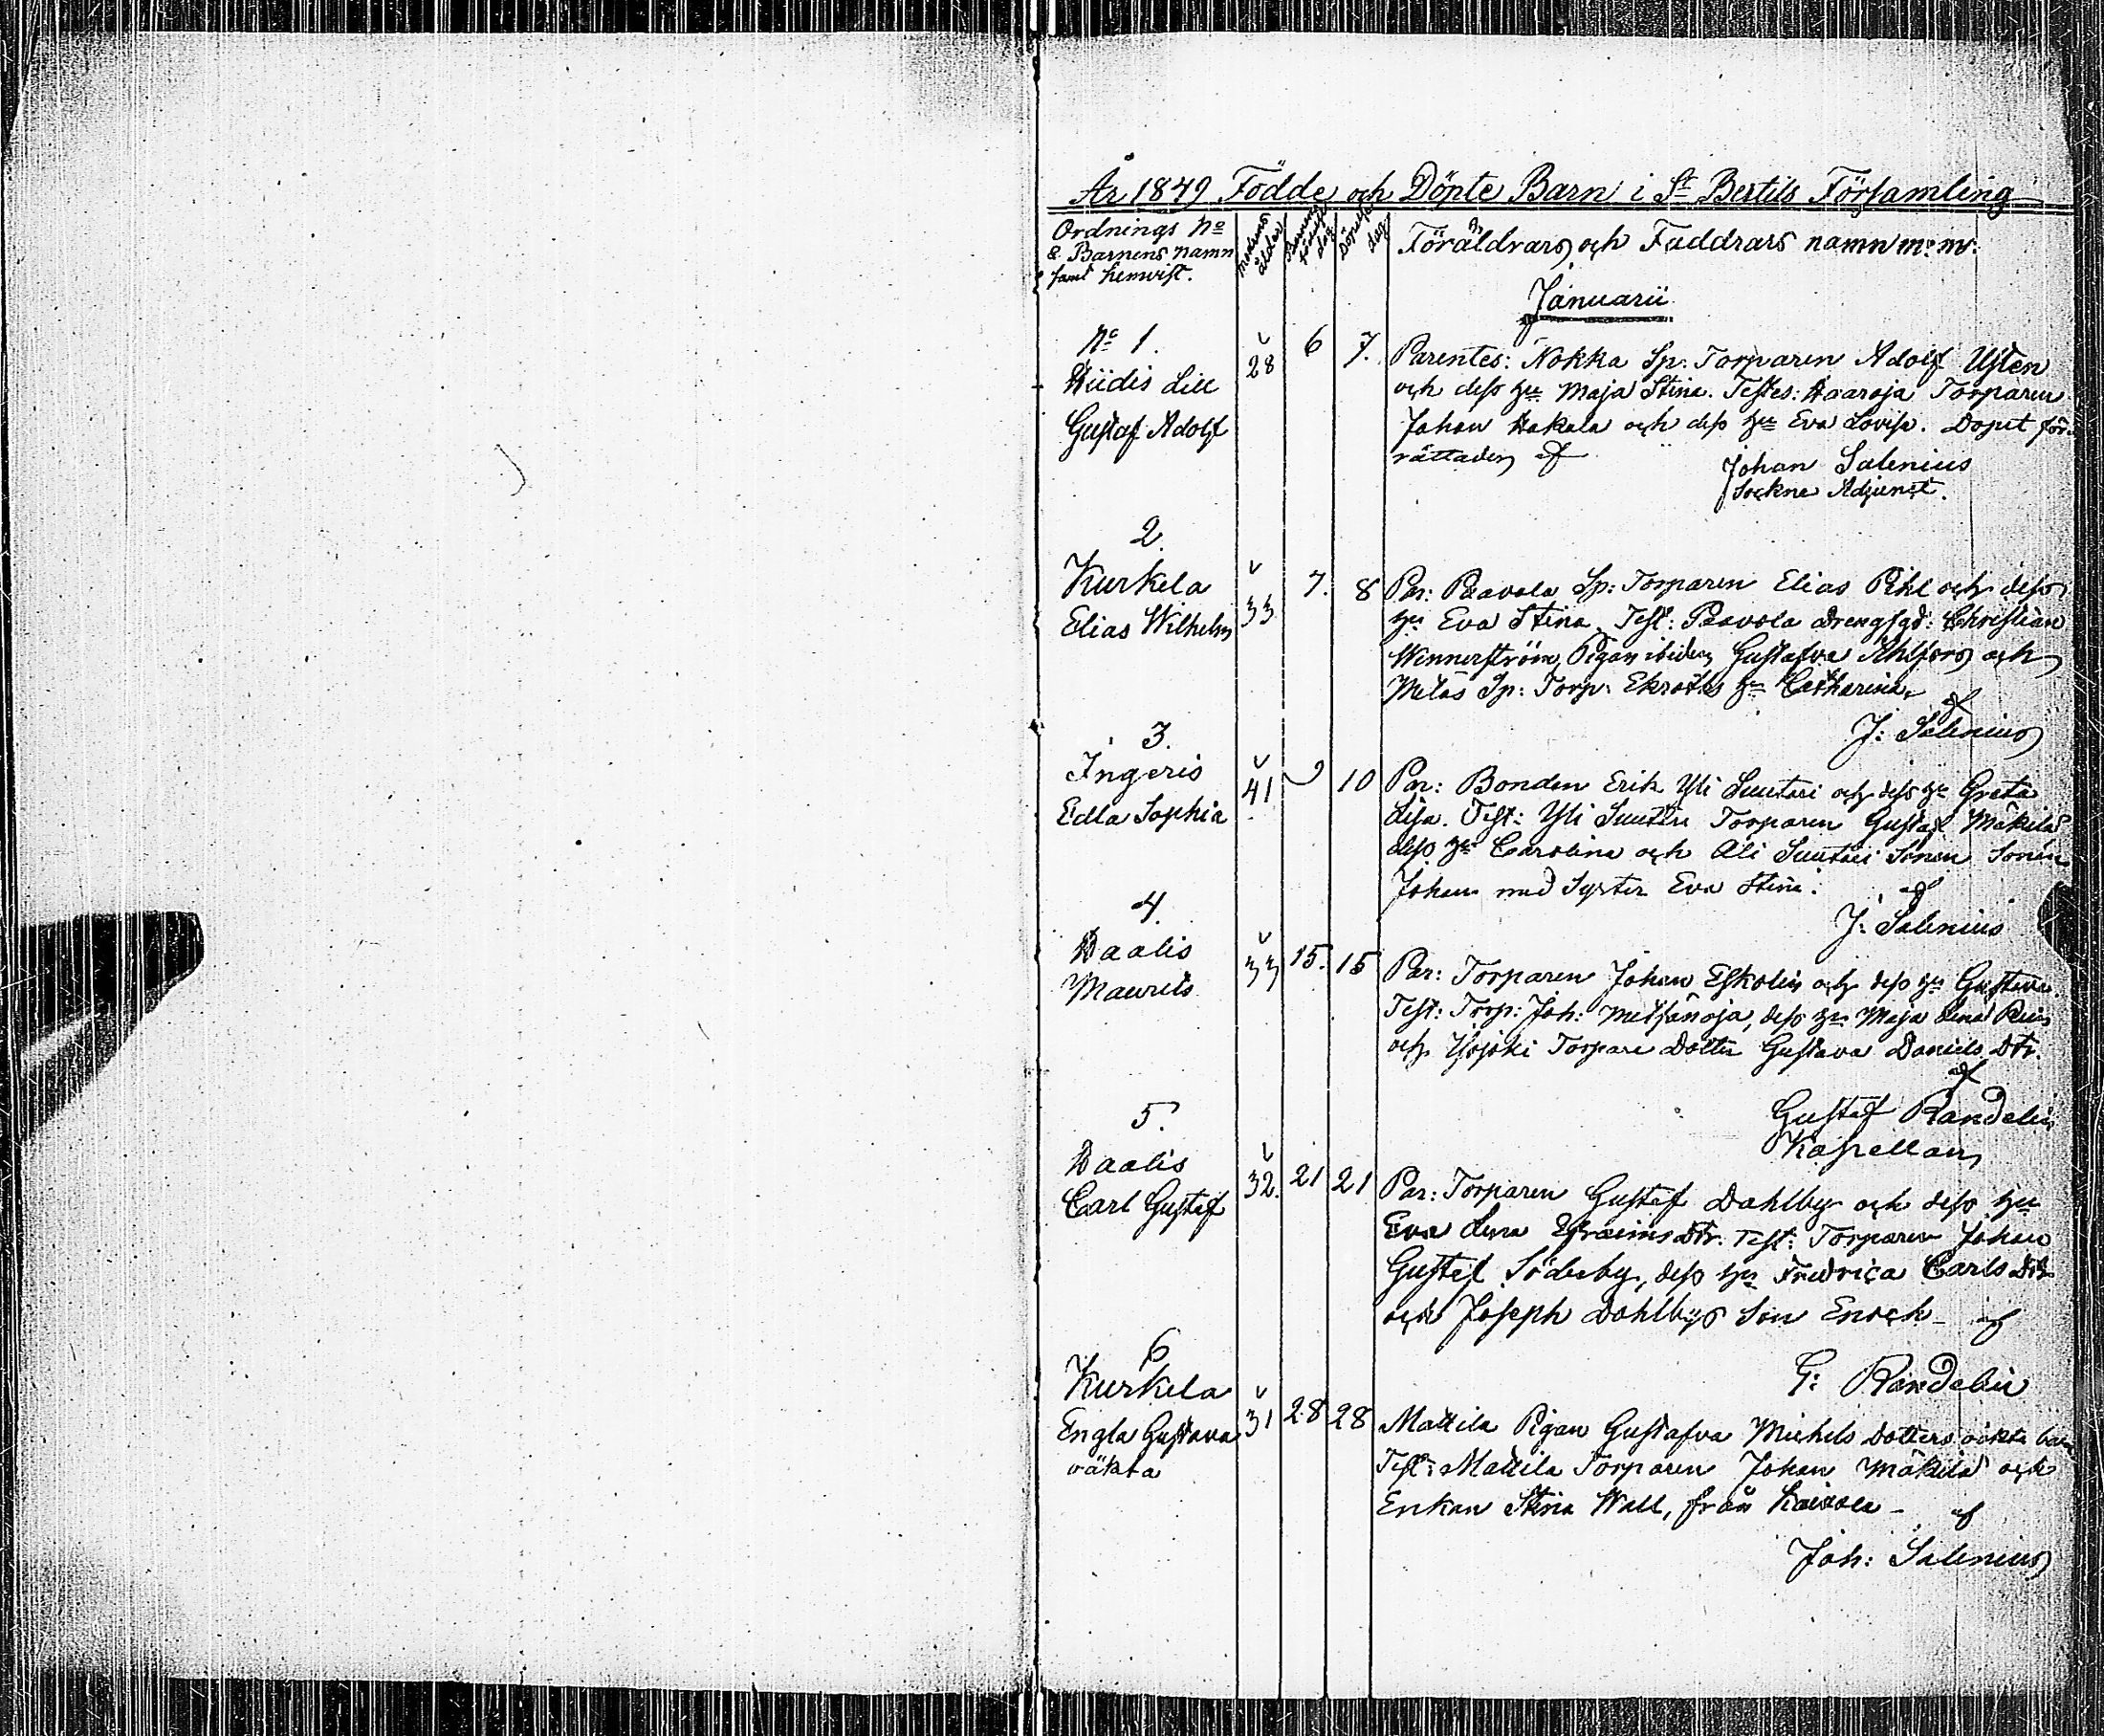 År 1849 Födde och Döpte Barn i St Bertils Församling
Ordnings No
& Barnens namn
samt hemvist.
Modrens ålder
Barnens födelse dag
Döpelse dag
Föräldrars och Faddrars namn m: m:
Januarii
No 1.
Gustaf Adolf
28
6
7.
Parentes: Nokka Sp: Torparen Adolf Usten
och dess hu Maja Stina. Testes: Haaroja Torparen
Johan Hakala och dess hu Eva Lovisa. Dopet för-
rättades af
Johan Salenius
Sockne Adjunct.
2.
Kurkela
Elias Wilhelm
33
7.
8
Par: Paavola Sp: Torparen Elias Pihl och dess
hu Eva Stina. Test: Paavola Drengsgd: Christian
Wennerström, Pigan ibidem Gustafva Ahlfors och
Sp: Torp: Ekroths hu Catharina, af
J: Salenius
3.
Ingeris
Edla Sophia
41
9
10
Par: Bonden Erik Yli Suutari och dess hu Greta
Lisa. Test: Yli Suutari Torparen Gustaf Mäkilä
dess hu Carolina och Ali Suutari Sonen
Johan med Syster Eva Stina. af
J: Salenius
4.
Waalis
Maurits
33
15.
15
Par: Torparen Johan Eskolin och dess hu Gustava.
Test: Torp: Joh: Metsänoja, dess hu Maja Lena
och Torpare Dotter Gustava Daniels Dtr.
af
Gustaf Randelin
Kapellan
5.
Waalis
Carl Gustaf
32.
21
21
Par: Torparen Gustaf Dahlby och dess hu
Eva Lena Efraims Dtr. Test: Torparen Johan
Gustaf Söderby, dess hu Fredrica Carls Dtr
och Joseph Dahlbys Son Enoch – af
G: Randelin
6
Kurkela
Engla Gustava
oäkta
31
28
28
Mattila Pigan Gustafva Michels Dotters oäkta barn
Test: Mattila Torparen Johan Mäkilä och
Enkan Stina Wall, från Kaivola – af
Joh: Salenius